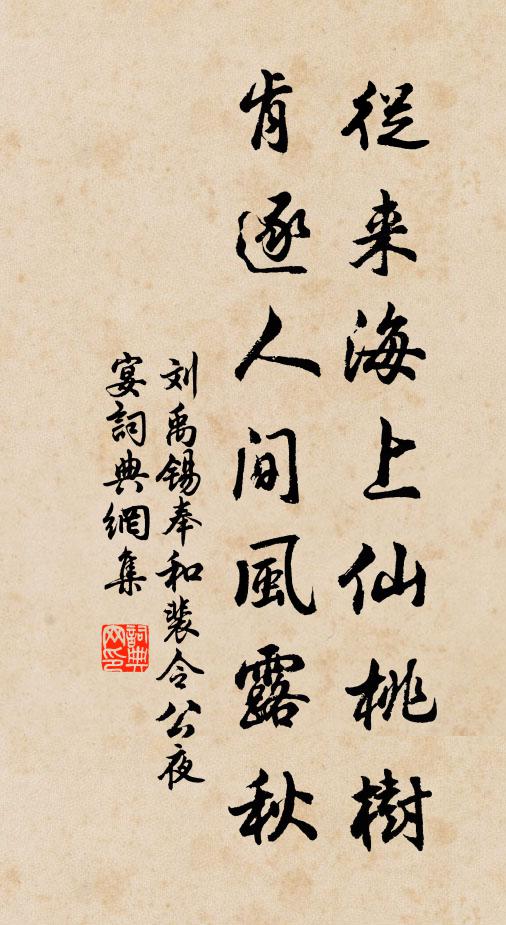 從来海上仙桃樹
肯逐人间風露秋
刘禹锡奉和裴令公夜
宴詞典網集
詞典
网印